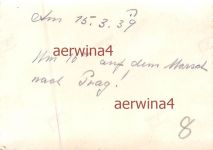 Am 15.3.39
aerwina4
Um 10⁰⁰ auf dem Marsch
nach Prag!
aerwina4
8